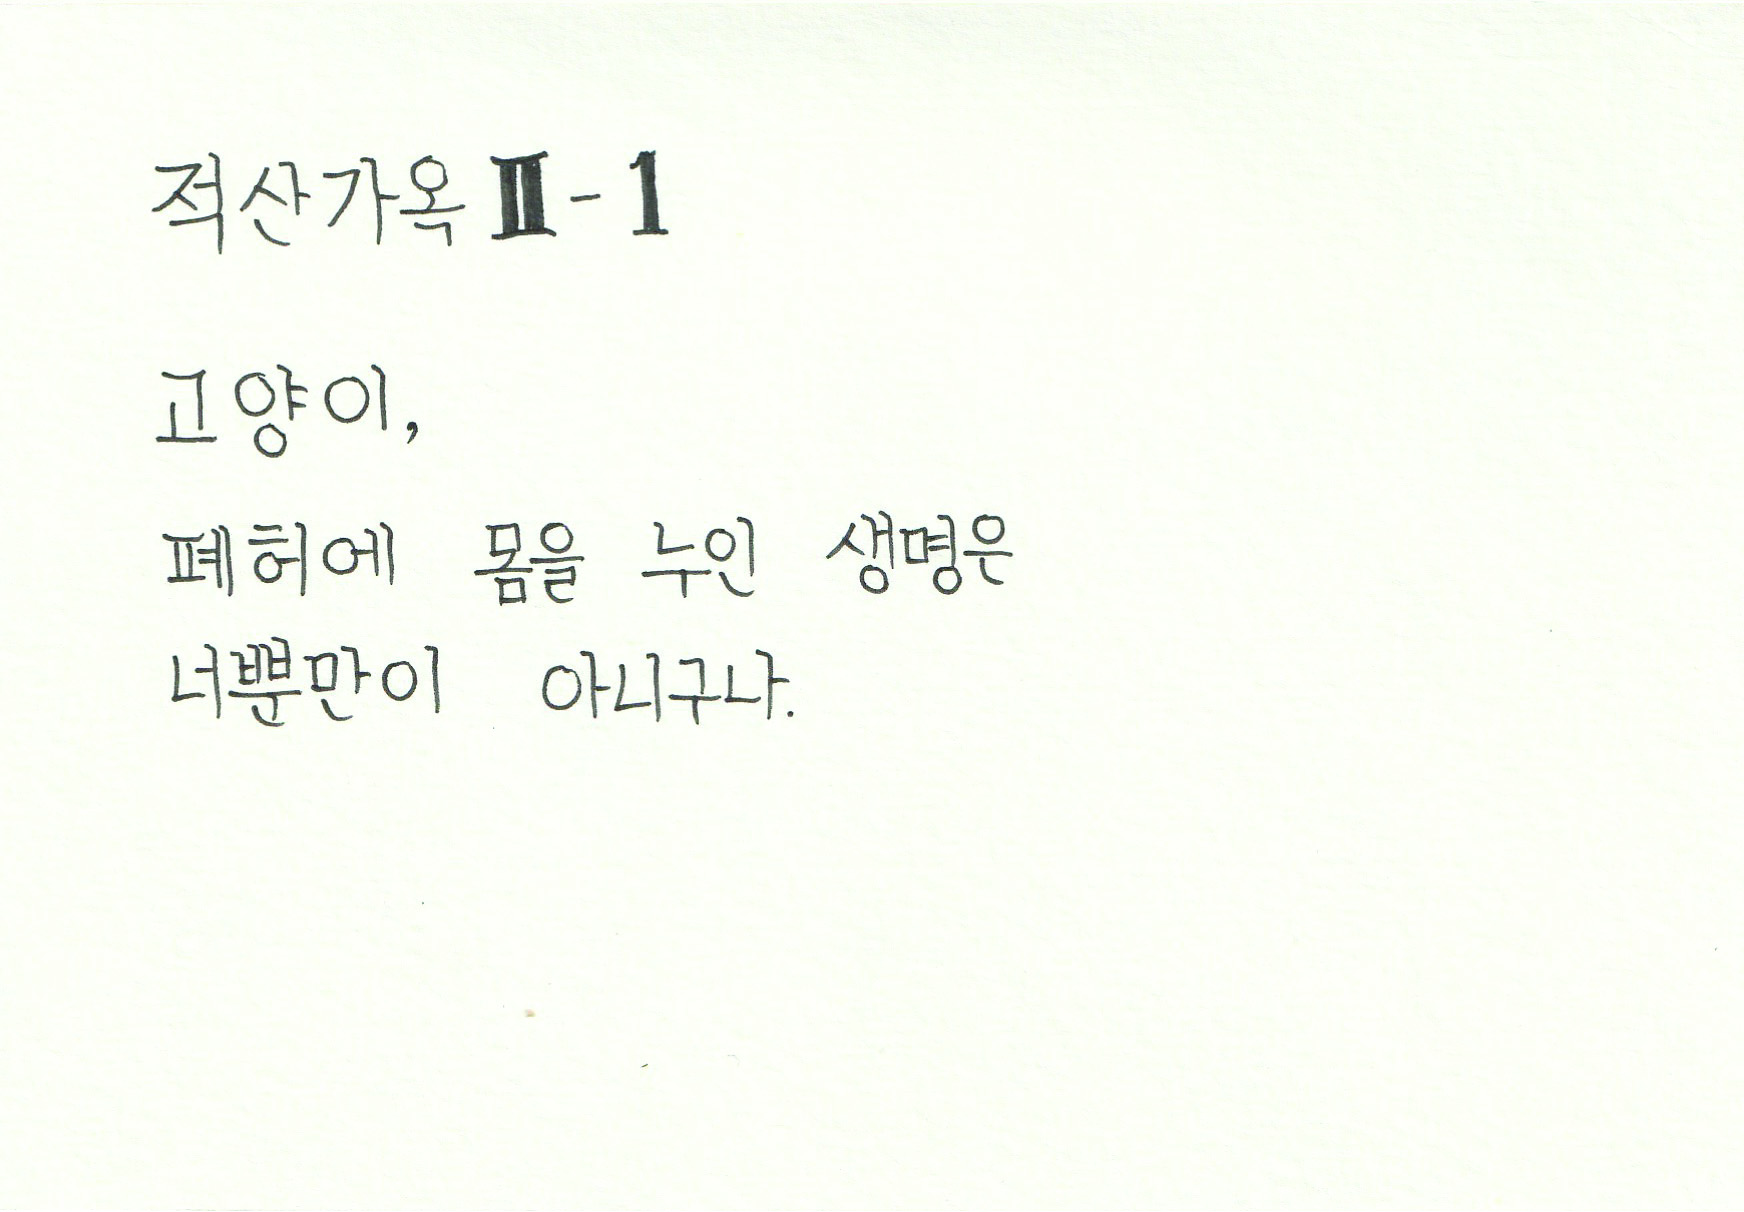 적산가옥 Ⅱ - 1
고양이,
폐허에 몸을 누인 생명은
너뿐만이 아니구나.